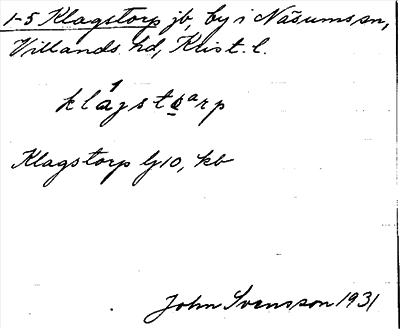 1-5 Klagstorp jb, by i Näsums sn,
Villands hd, Krist. l.
Klagstorp Gj 10, kb
John Svensson 1931